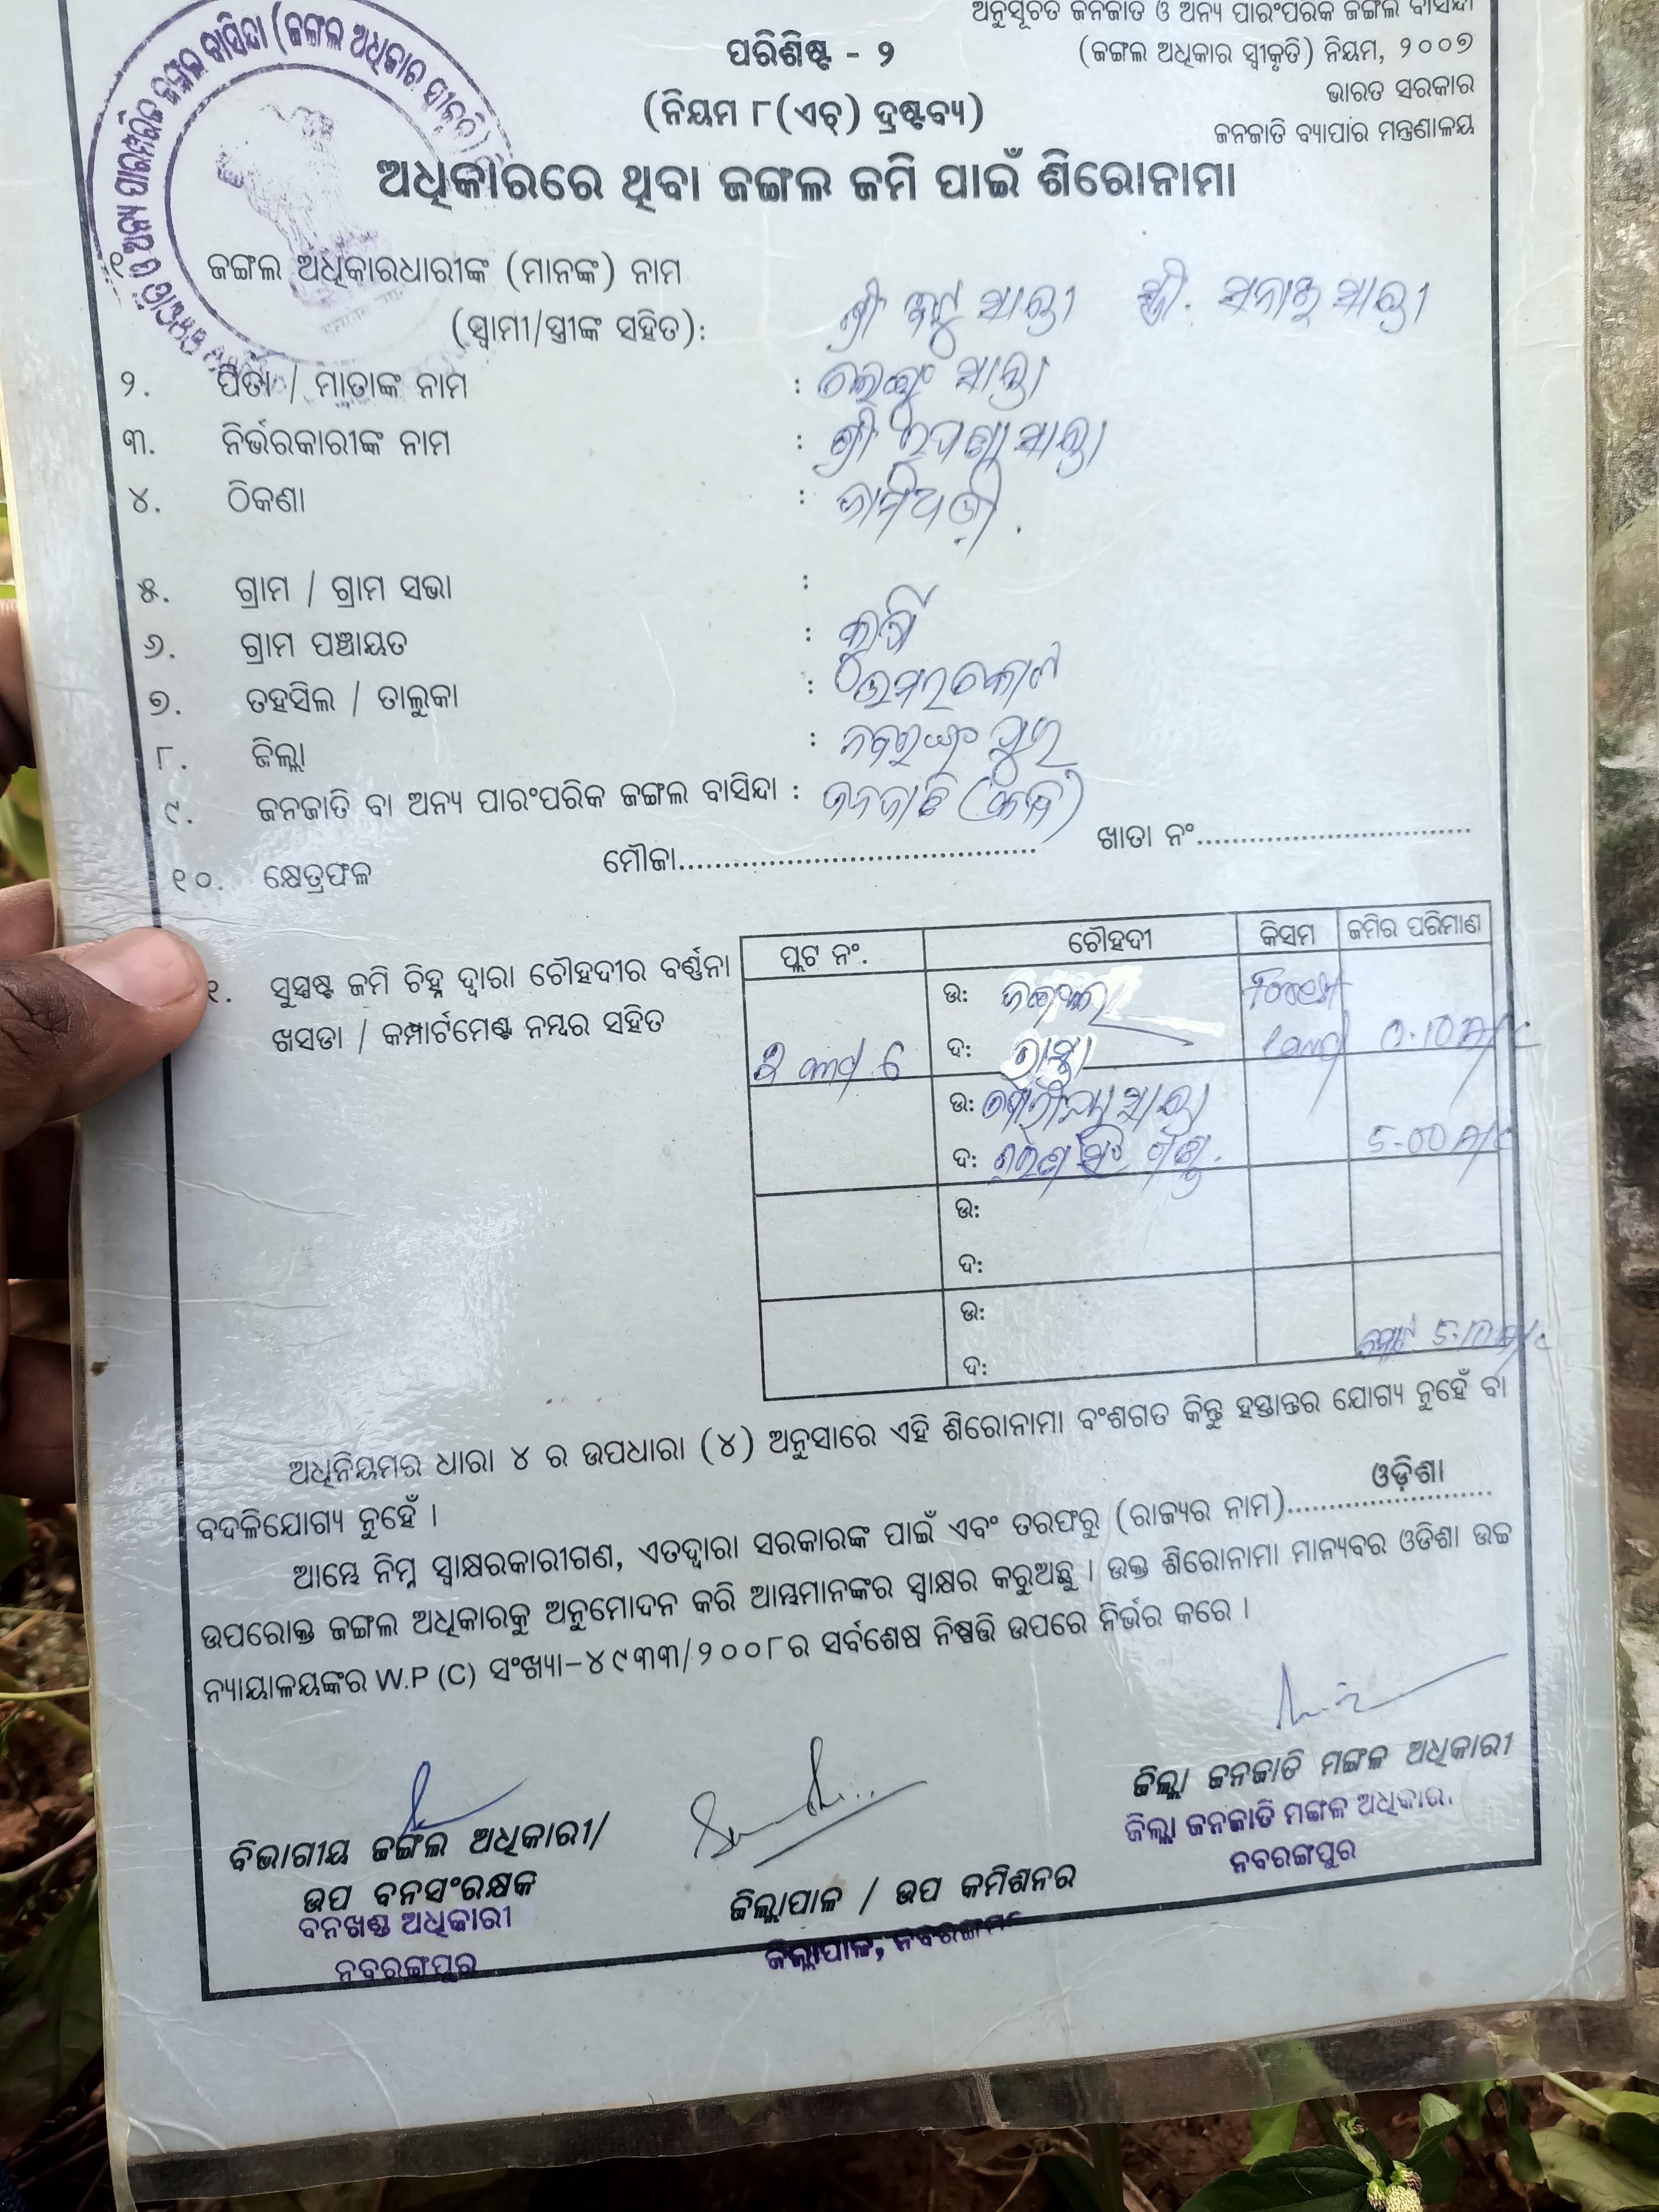 ଅନୁସୂଚିତ ଜନଜାତି ଓ ଅନ୍ୟ ପାରଂପରିକ ଜଙ୍ଗଲ ବାସିନ୍ଦା
(ଜଙ୍ଗଲ ଅଧିକାର ସ୍ୱୀକୃତି) ନିୟମ, ୨୦୦୭
ଭାରତ ସରକାର
ଜନଜାତି ବ୍ୟାପାର ମନ୍ତ୍ରଣାଳୟ
ପରିଶିଷ୍ଟ - ୨
(ନିୟମ ୮(ଏଚ୍) ଦ୍ରଷ୍ଟବ୍ୟ)
ଅଧିକାରରେ ଥିବା ଜଙ୍ଗଲ ଜମି ପାଇଁ ଶିରୋନାମା
୧. ଜଙ୍ଗଲ ଅଧିକାରଧାରୀଙ୍କ (ମାନଙ୍କ) ନାମ
(ସ୍ୱାମୀ/ସ୍ତ୍ରୀଙ୍କ ସହିତ): ଶ୍ରୀ
୨. ପିତା / ମାତାଙ୍କ ନାମ :
୩. ନିର୍ଭରକାରୀଙ୍କ ନାମ : ଶ୍ରୀ
୪. ଠିକଣା :
୫. ଗ୍ରାମ / ଗ୍ରାମ ସଭା :
୬. ଗ୍ରାମ ପଞ୍ଚାୟତ :
୭. ତହସିଲ / ତାଲୁକା : ଉମରକୋଟ
୮. ଜିଲ୍ଲା : ନବରଙ୍ଗପୁର
୯. ଜନଜାତି ବା ଅନ୍ୟ ପାରଂପରିକ ଜଙ୍ଗଲ ବାସିନ୍ଦା : ଜନଜାତି
୧୦. କ୍ଷେତ୍ରଫଳ ମୌଜା........ ଖାତା ନଂ........
୧. ସୁସ୍ପଷ୍ଟ ଜମି ଚିହ୍ନ ଦ୍ୱାରା ଚୌହଦୀର ବର୍ଣ୍ଣନା
ଖସଡା / କମ୍ପାର୍ଟମେଣ୍ଟ ନମ୍ବର ସହିତ
ପ୍ଲଟ ନଂ. ଚୌହଦୀ କିସମ ଜମିର ପରିମାଣ
ଉ: ଜଙ୍ଗଲ Forest
ଦ: ରାସ୍ତା land 0.10 A/c
ଉ:
ଦ: 5-00 A/c
ଉ:
ଦ:
ଉ:
ଦ: ମୋଟ 5.10 A/c
ଅଧିନିୟମର ଧାରା ୪ ର ଉପଧାରା (୪) ଅନୁସାରେ ଏହି ଶିରୋନାମା ବଂଶଗତ କିନ୍ତୁ ହସ୍ତାନ୍ତର ଯୋଗ୍ୟ ନୁହେଁ ବା
ବଦଳିଯୋଗ୍ୟ ନୁହେଁ ।
ଆମ୍ଭେ ନିମ୍ନ ସ୍ୱାକ୍ଷରକାରୀଗଣ, ଏତଦ୍ୱାରା ସରକାରଙ୍କ ପାଇଁ ଏବଂ ତରଫରୁ (ରାଜ୍ୟର ନାମ)....ଓଡ଼ିଶା....
ଉପରୋକ୍ତ ଜଙ୍ଗଲ ଅଧିକାରକୁ ଅନୁମୋଦନ କରି ଆମ୍ଭମାନଙ୍କର ସ୍ୱାକ୍ଷର କରୁଅଛୁ । ଉକ୍ତ ଶିରୋନାମା ମାନ୍ୟବର ଓଡିଶା ଉଚ୍ଚ
ନ୍ୟାୟାଳୟଙ୍କର W.P (C) ସଂଖ୍ୟା-୪୯୩୩/୨୦୦୮ର ସର୍ବଶେଷ ନିଷ୍ପତ୍ତି ଉପରେ ନିର୍ଭର କରେ ।
ବିଭାଗୀୟ ଜଙ୍ଗଲ ଅଧିକାରୀ/
ଉପ ବନସଂରକ୍ଷକ
ବନଖଣ୍ଡ ଅଧିକାରୀ
ନବରଙ୍ଗପୁର
ଜିଲ୍ଲାପାଳ / ଉପ କମିଶନର
ଜିଲ୍ଲାପାଳ, ନବରଙ୍ଗପୁର
ଜିଲ୍ଲା ଜନଜାତି ମଙ୍ଗଳ ଅଧିକାରୀ
ଜିଲ୍ଲା ଜନଜାତି ମଙ୍ଗଳ ଅଧିକାରୀ
ନବରଙ୍ଗପୁର